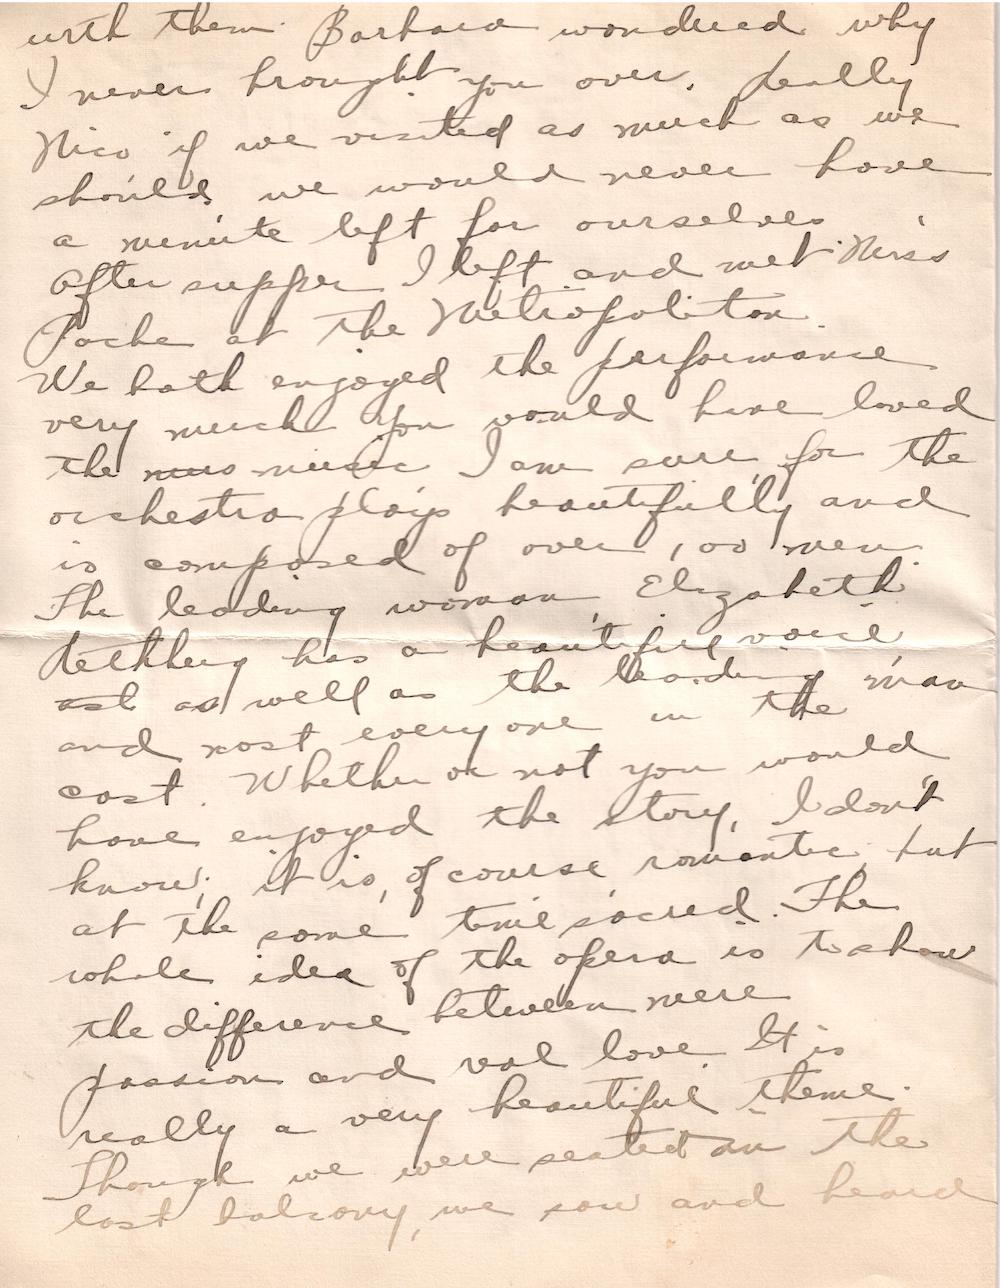 with them. Barbara wondered why
I never brought you over. Really
Nico if we visited as much as we
should, we would never have
a minute left for ourselves
After supper I left and met Miss
Poche at the Metropolitan.
We both enjoyed the performance
very much You would have loved
the mus music I am sure, for the
orchestra plays beautifully and
is composed of over 100 men.
The leading woman, Elizabeth
Rethberg has a beautiful voice
as well as the leading man
and most everyone in the
cast. Whether or not you would
have enjoyed the story, I don't
know; it is, of course romantic, but
at the same time sacred. The
whole idea of the opera is to show
the difference between mere
passion and real love. It is
really a very beautiful theme.
Though we were seated in the
last balcony, we saw and heard